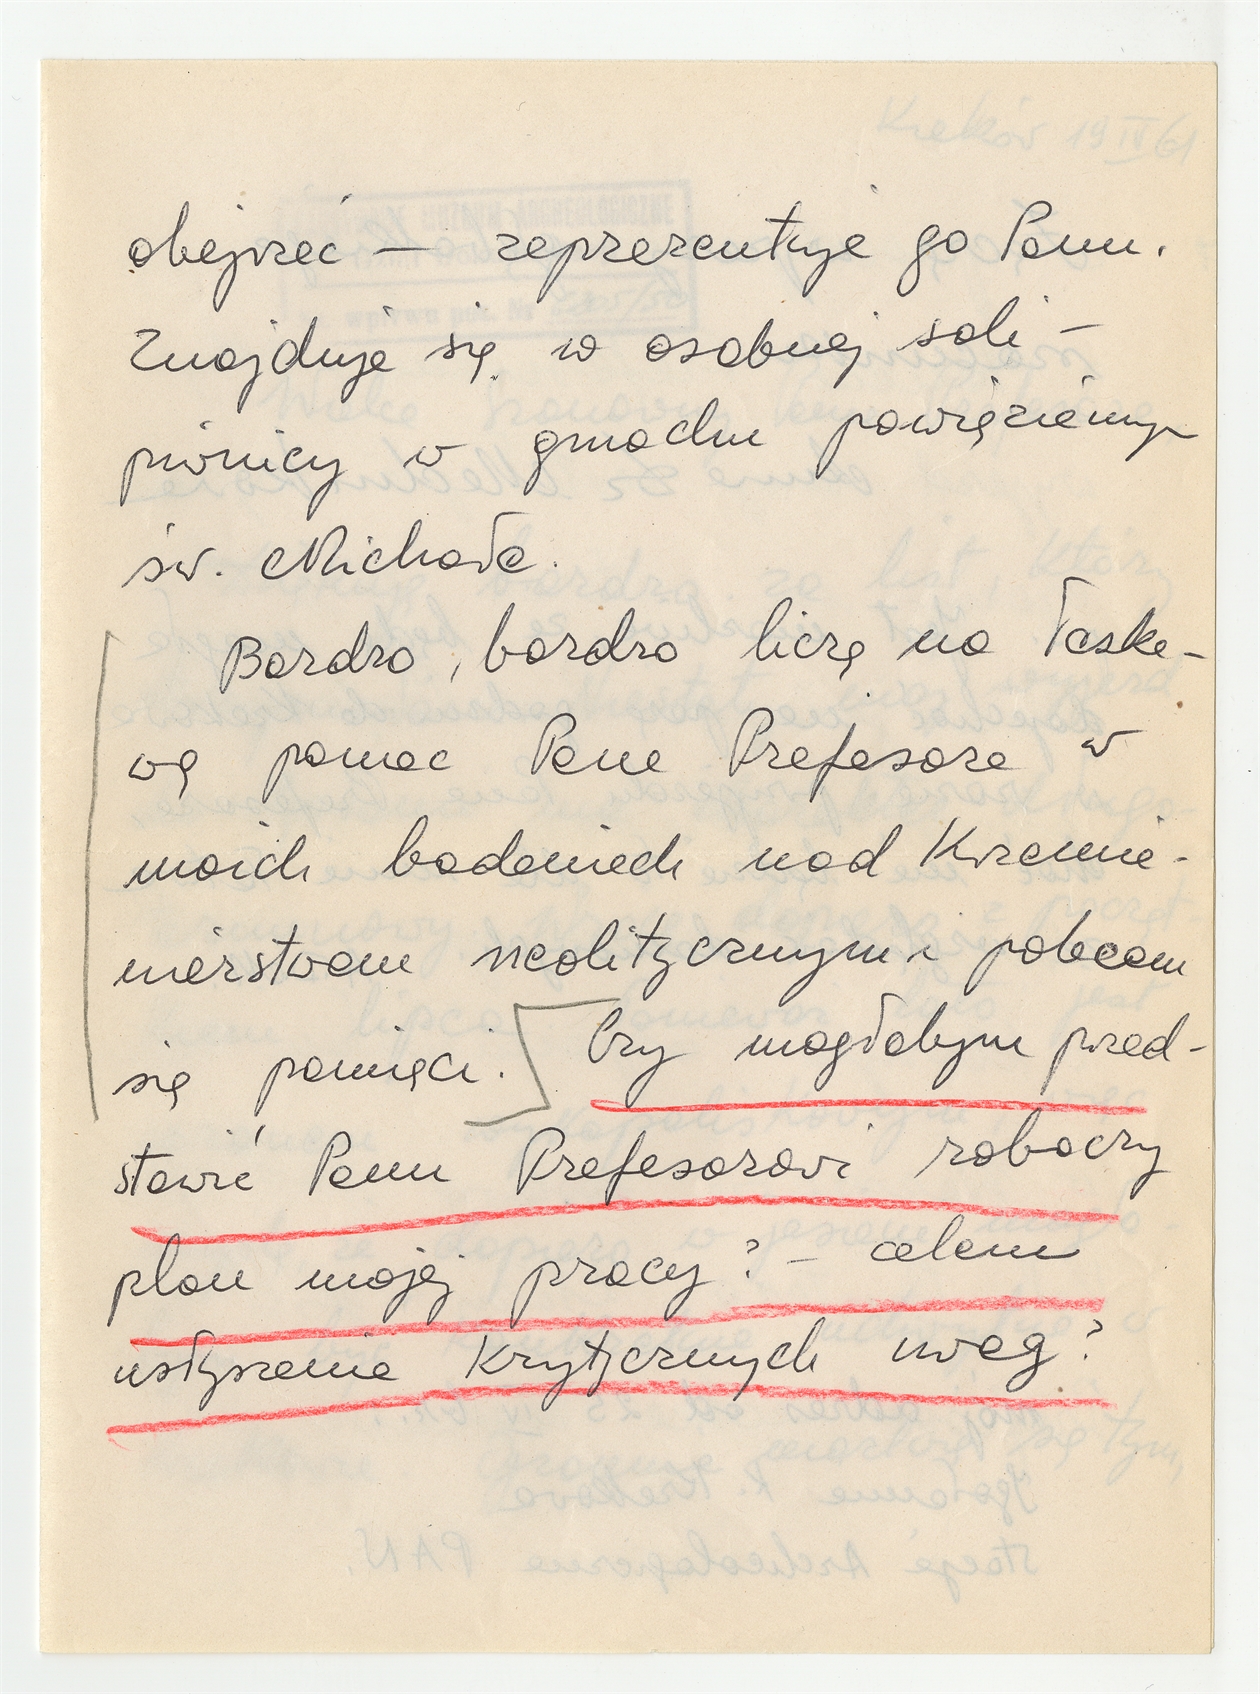 obejrzeć — reprezentuje go Panu.
Znajduje się w osobnej sali —
piwnicy w gmachu powięziennym
św. Michała.
Bardzo, bardzo liczę na łaska-
wą pomoc Pana Profesora w
moich badaniach nad Krzemie-
niarstwem neolitycznym i polecam
się pamięci. Czy mogłabym przed-
stawić Panu Profesorowi roboczy
plan mojej pracy? — celem
usłyszenia krytycznych uwag?